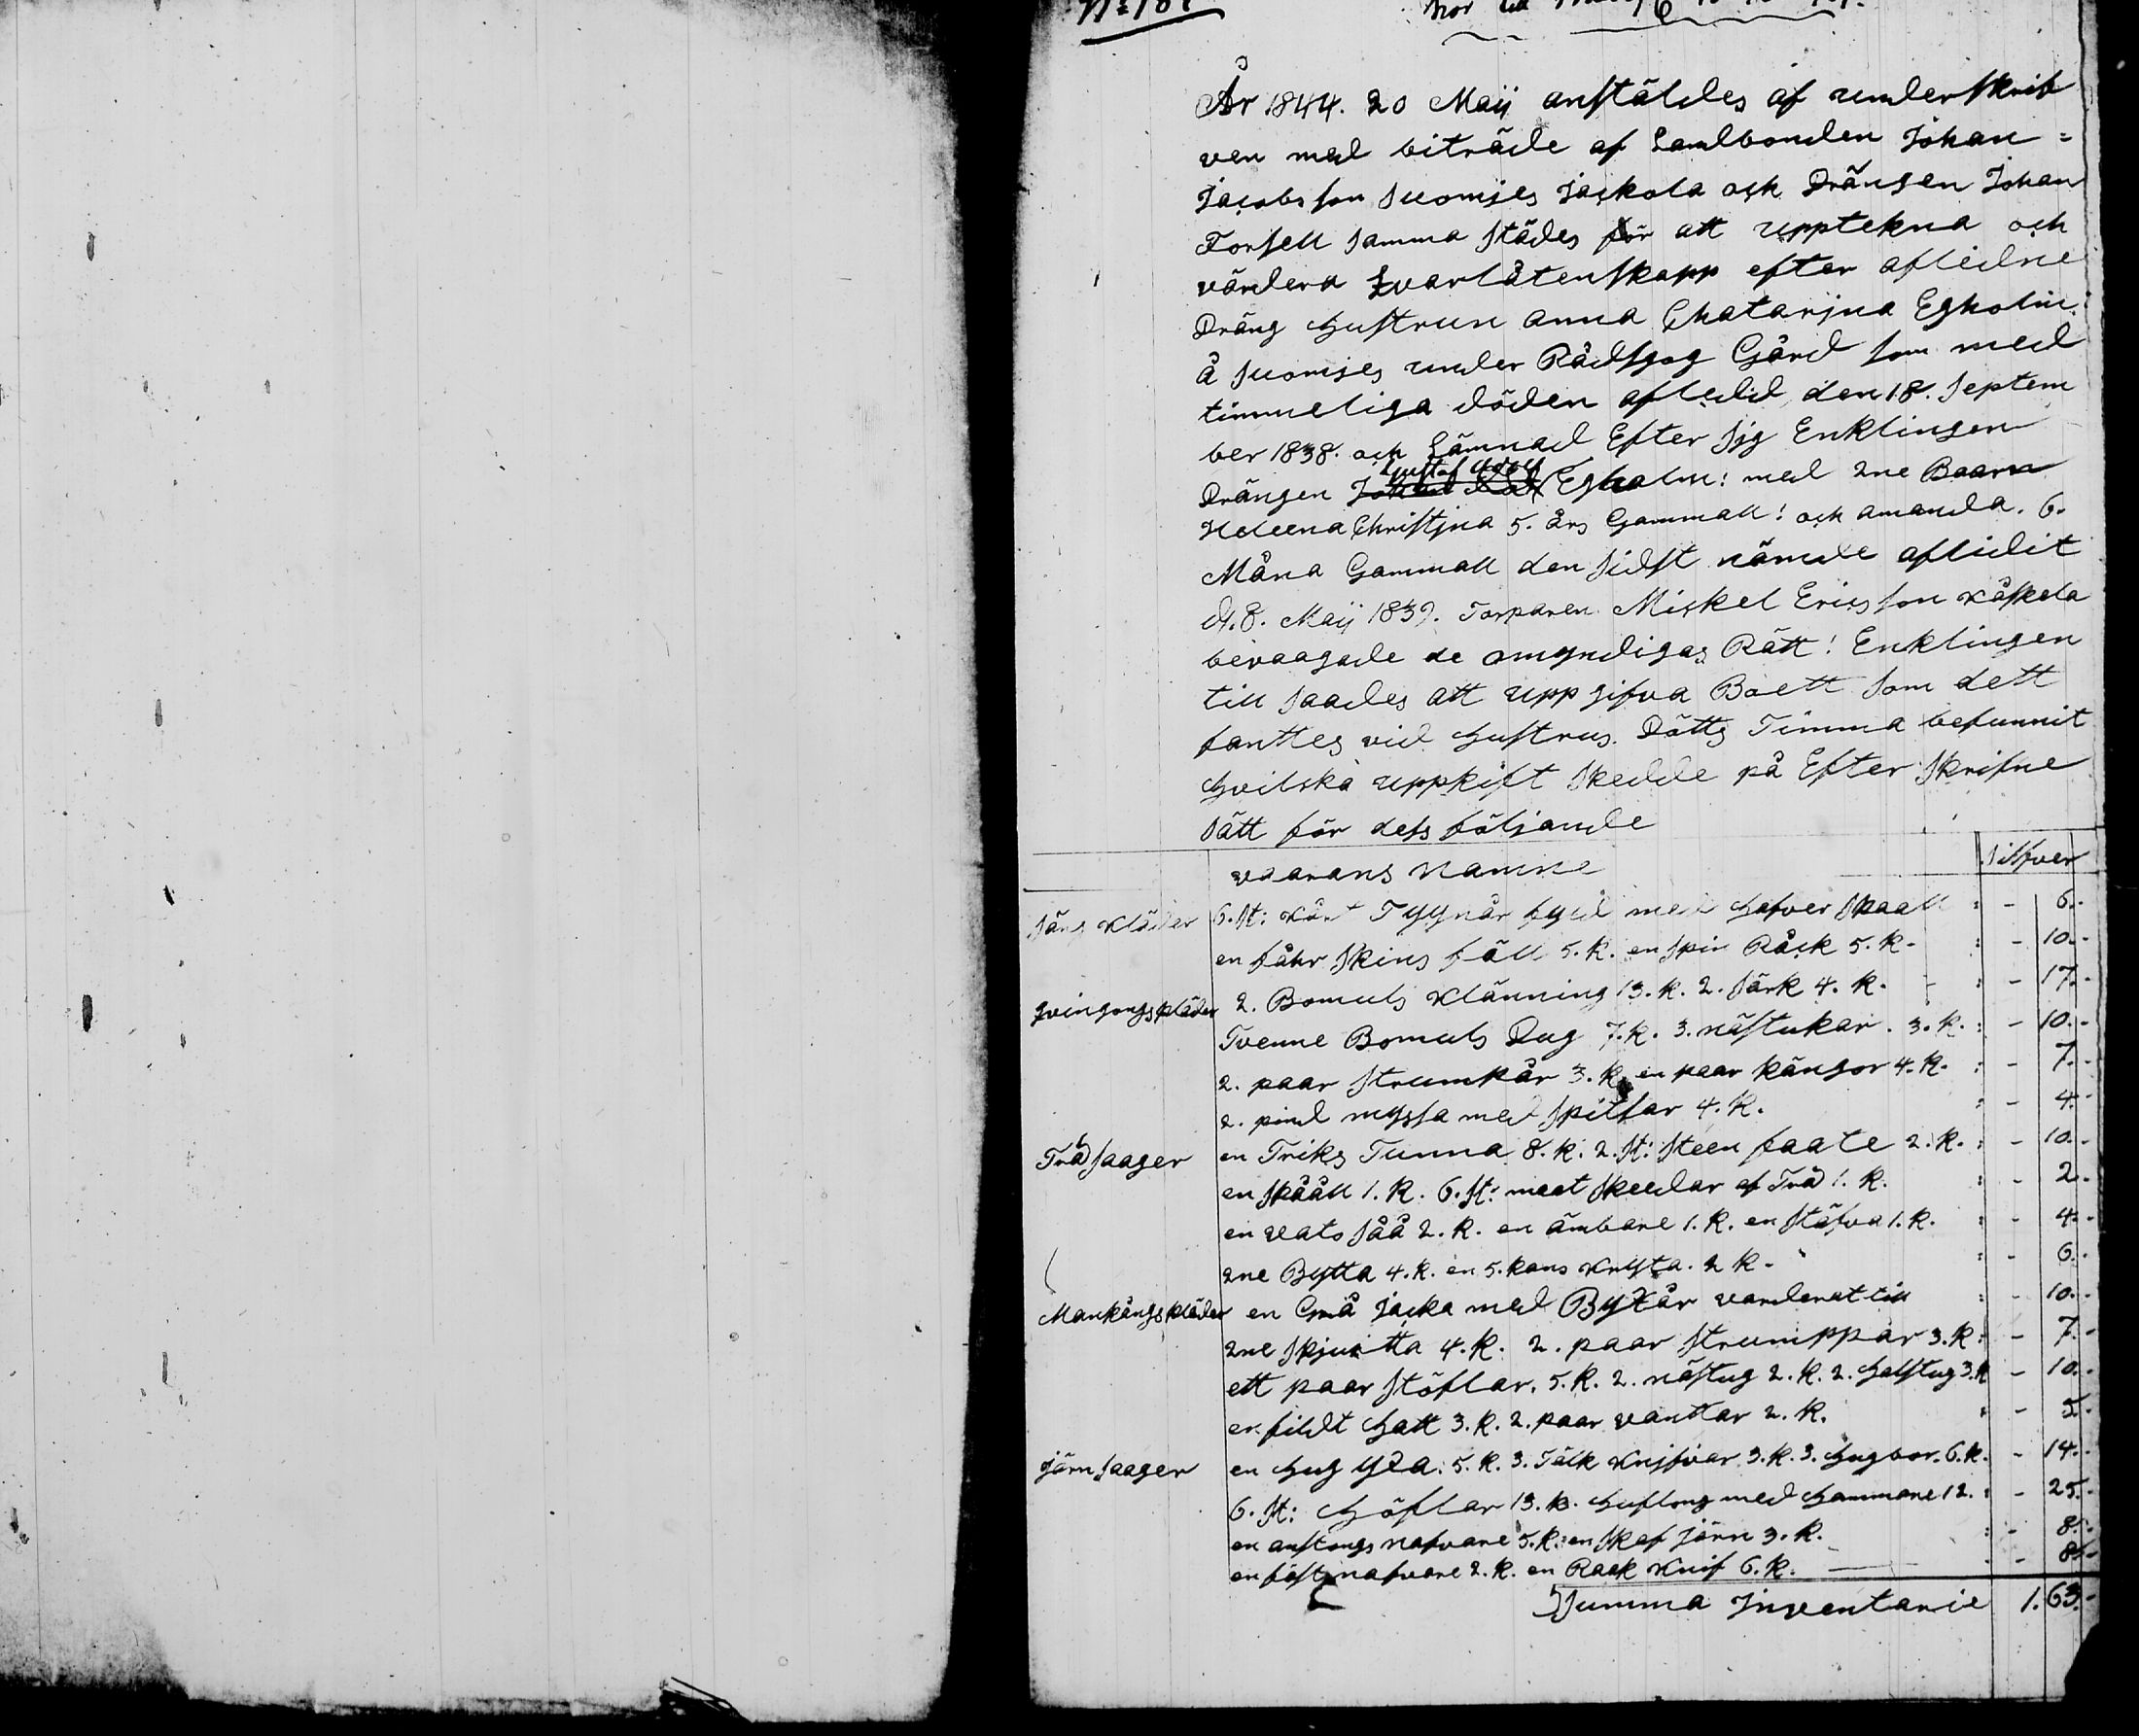 År 1844. 20 Maij anstäldes af underskrif
ven med biträde af Landbonden Johan =
Jacobsson Suomjes Jackola och Drängen Johan
Forsell samma städes för att upptekna och
värdera Qvarlåtenskapp efter afledne
Dräng Hustrun Anna Chatarjna Egholm
å Suomjes under Rådsgog Gård som med
timmeliga döden afledid den 18. Septem
ber 1838. och Lämnad Efter sjg Enklingen
Gustaf Adolf
Drängen Johan Egholm: med 2ne Baarn
Heleena Christjna 5. års Gammall! och Amanda. 6.
Måna Gammall den sidst nämde aflidit
d. 8. Maij 1839. Torparen Mickel Ericsson Käskela
bevaagade de omyndigas Rätt! Enklingen
till saades att uppgifva Boett som dett
fanttes vid Hustrus Dötts Timma befunnit
Hvilska uppkift skedde på Efter skrifne
sätt för dess följande
vaarans Namne
Silfver
Säng Kläder 6. st: Tyynår fyld med Hafver skaall : - 6.-
en fåhr skins fäll 5. k. en spin Råck 5. k. : - 10.-
Qvingongs kläder 2. Bomuls Klänning 13. k. 2. särk 4. k. - : - 17.-
Tvenne Bomuls Dug 7. k. 3. nästukar. 3. k. : - 10.-
2. paar strumpår 3. k. en paar kängor 4. k. : - 7.-
2. pind myssa med spittsar 4. k. : - 4.-
Trä saager en Triks Tunna 8. k. 2. st: steen faate 2. k. : - 10.-
en skååll 1. k. 6. st: maat skeedar af Trä 1. k. : - 2.-
en vats såå 2. k. en ämbare 1. k. en stäfva 1. k. : - 4.-
2ne Bytta 4. k. en 5. kans 2 k. : - 6.-
Mankångs kläder en Grå jacka med Byxår varderat till : - 10.-
2ne skjurtta 4. k. 2. paar strumppar 3. k : - 7.-
ett paar stöflar. 5. k. 2. nästug 2. k. 2. Halstug 3. k - 10.-
en fildt Hatt 3. k. 2. paar vanttar 2. k. : - 5.-
Järn saager en Hug yxa. 5. k. 3. Tälk Knjfvar 3. k. 3. Hugbor. 6. k. - 14.-
6. st: Höflar 13. k. Huflong med Hammare 12. : - 25.-
en anstongs nafvare 5. k. en skaf järn 3. k. : - 8.-
en fäst nafvare 2. k. en Raak Knif 6. k. - 8.-
Summa Inventarie 1.63.-